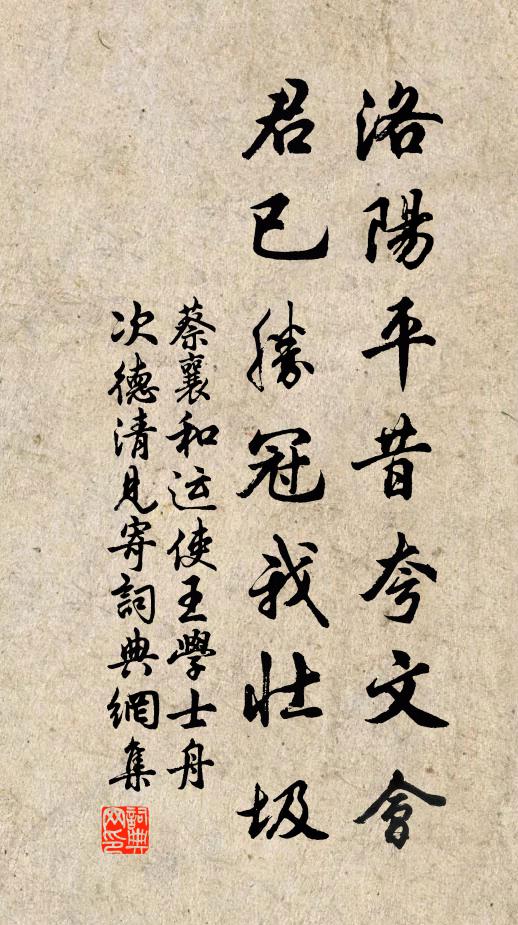 洛陽平昔夸文會
君已勝冠我壯圾
蔡襄和运使王學士舟
次德清見寄詞典網集
詞典网印